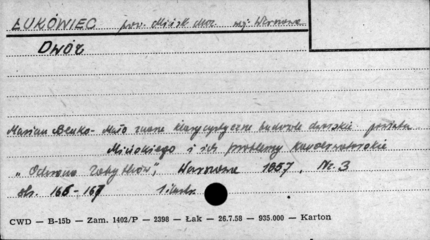 ŁUKÓWIEC pow. Mińsk Maz. woj. Warszawa
Dwór
Marian Benko - Mało znane klasycystyczne budowle dworskie powiatu
Mińskiego i ich problemy konserwatorskie
„Ochrona Zabytków", Warszawa 1957, Nr. 3
str. 165-167 1 ilustr.
CWD — B-15b — Zam. 1402/P — 2398 — Łak — 26.7.58 — 935.000 — Karton